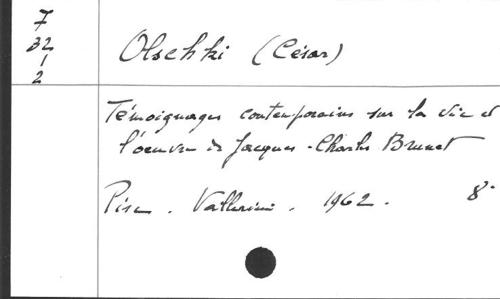 7
32
1
2
Olschki (César)
Témoignages contemporains sur la vie et
l'oeuvre de Jacques-Charles Brunet
Pise. Vallerini. 1962. 8°